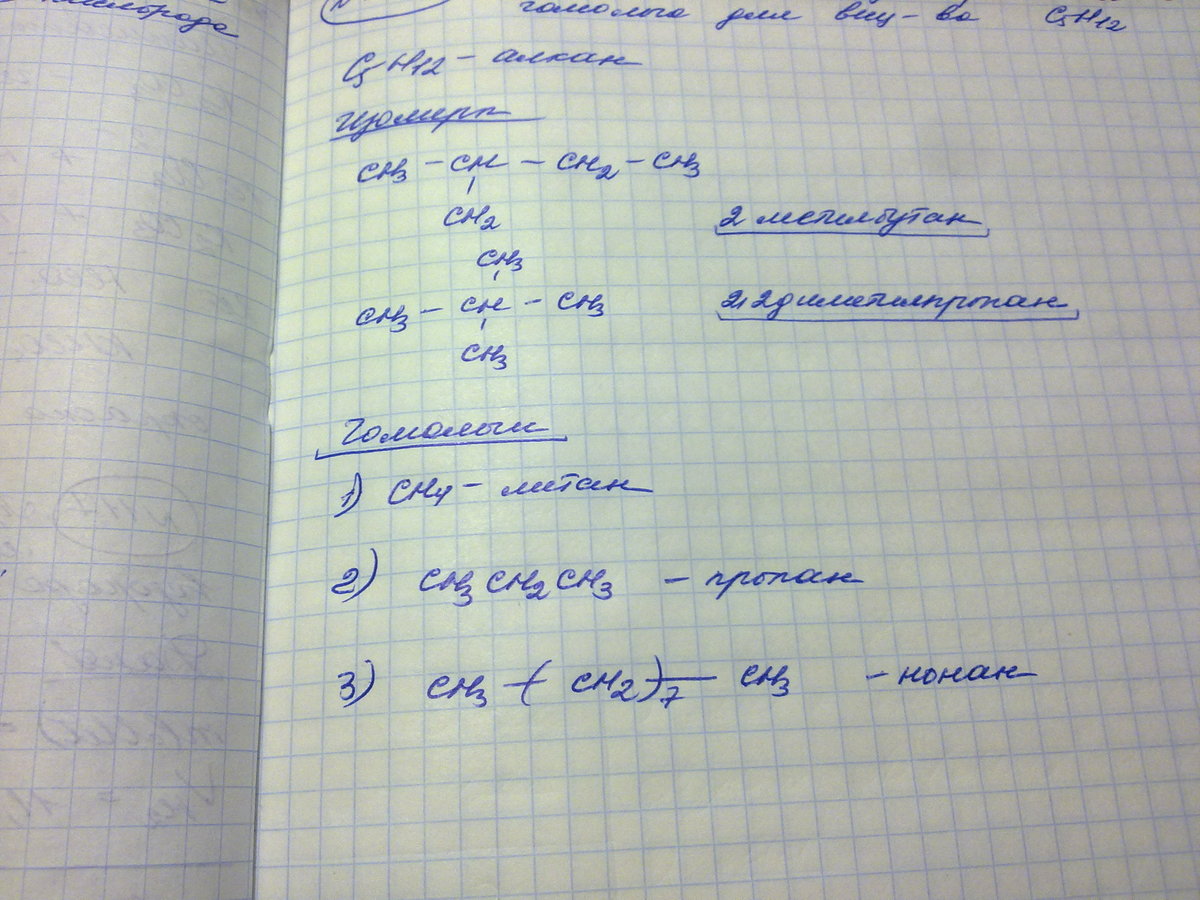 гомолога для вещ-ва C5H12
C5H12 - алкан
Изомеры
CH3 - CH - CH2 - CH3
CH2
2 метилбутан
CH3
CH3 - CH - CH3
2,2диметилпропан
CH3
Гомологи
1) CH4 - метан
2) CH3 CH2 CH3 - пропан
3) CH3 - (CH2)7 - CH3 - нонан